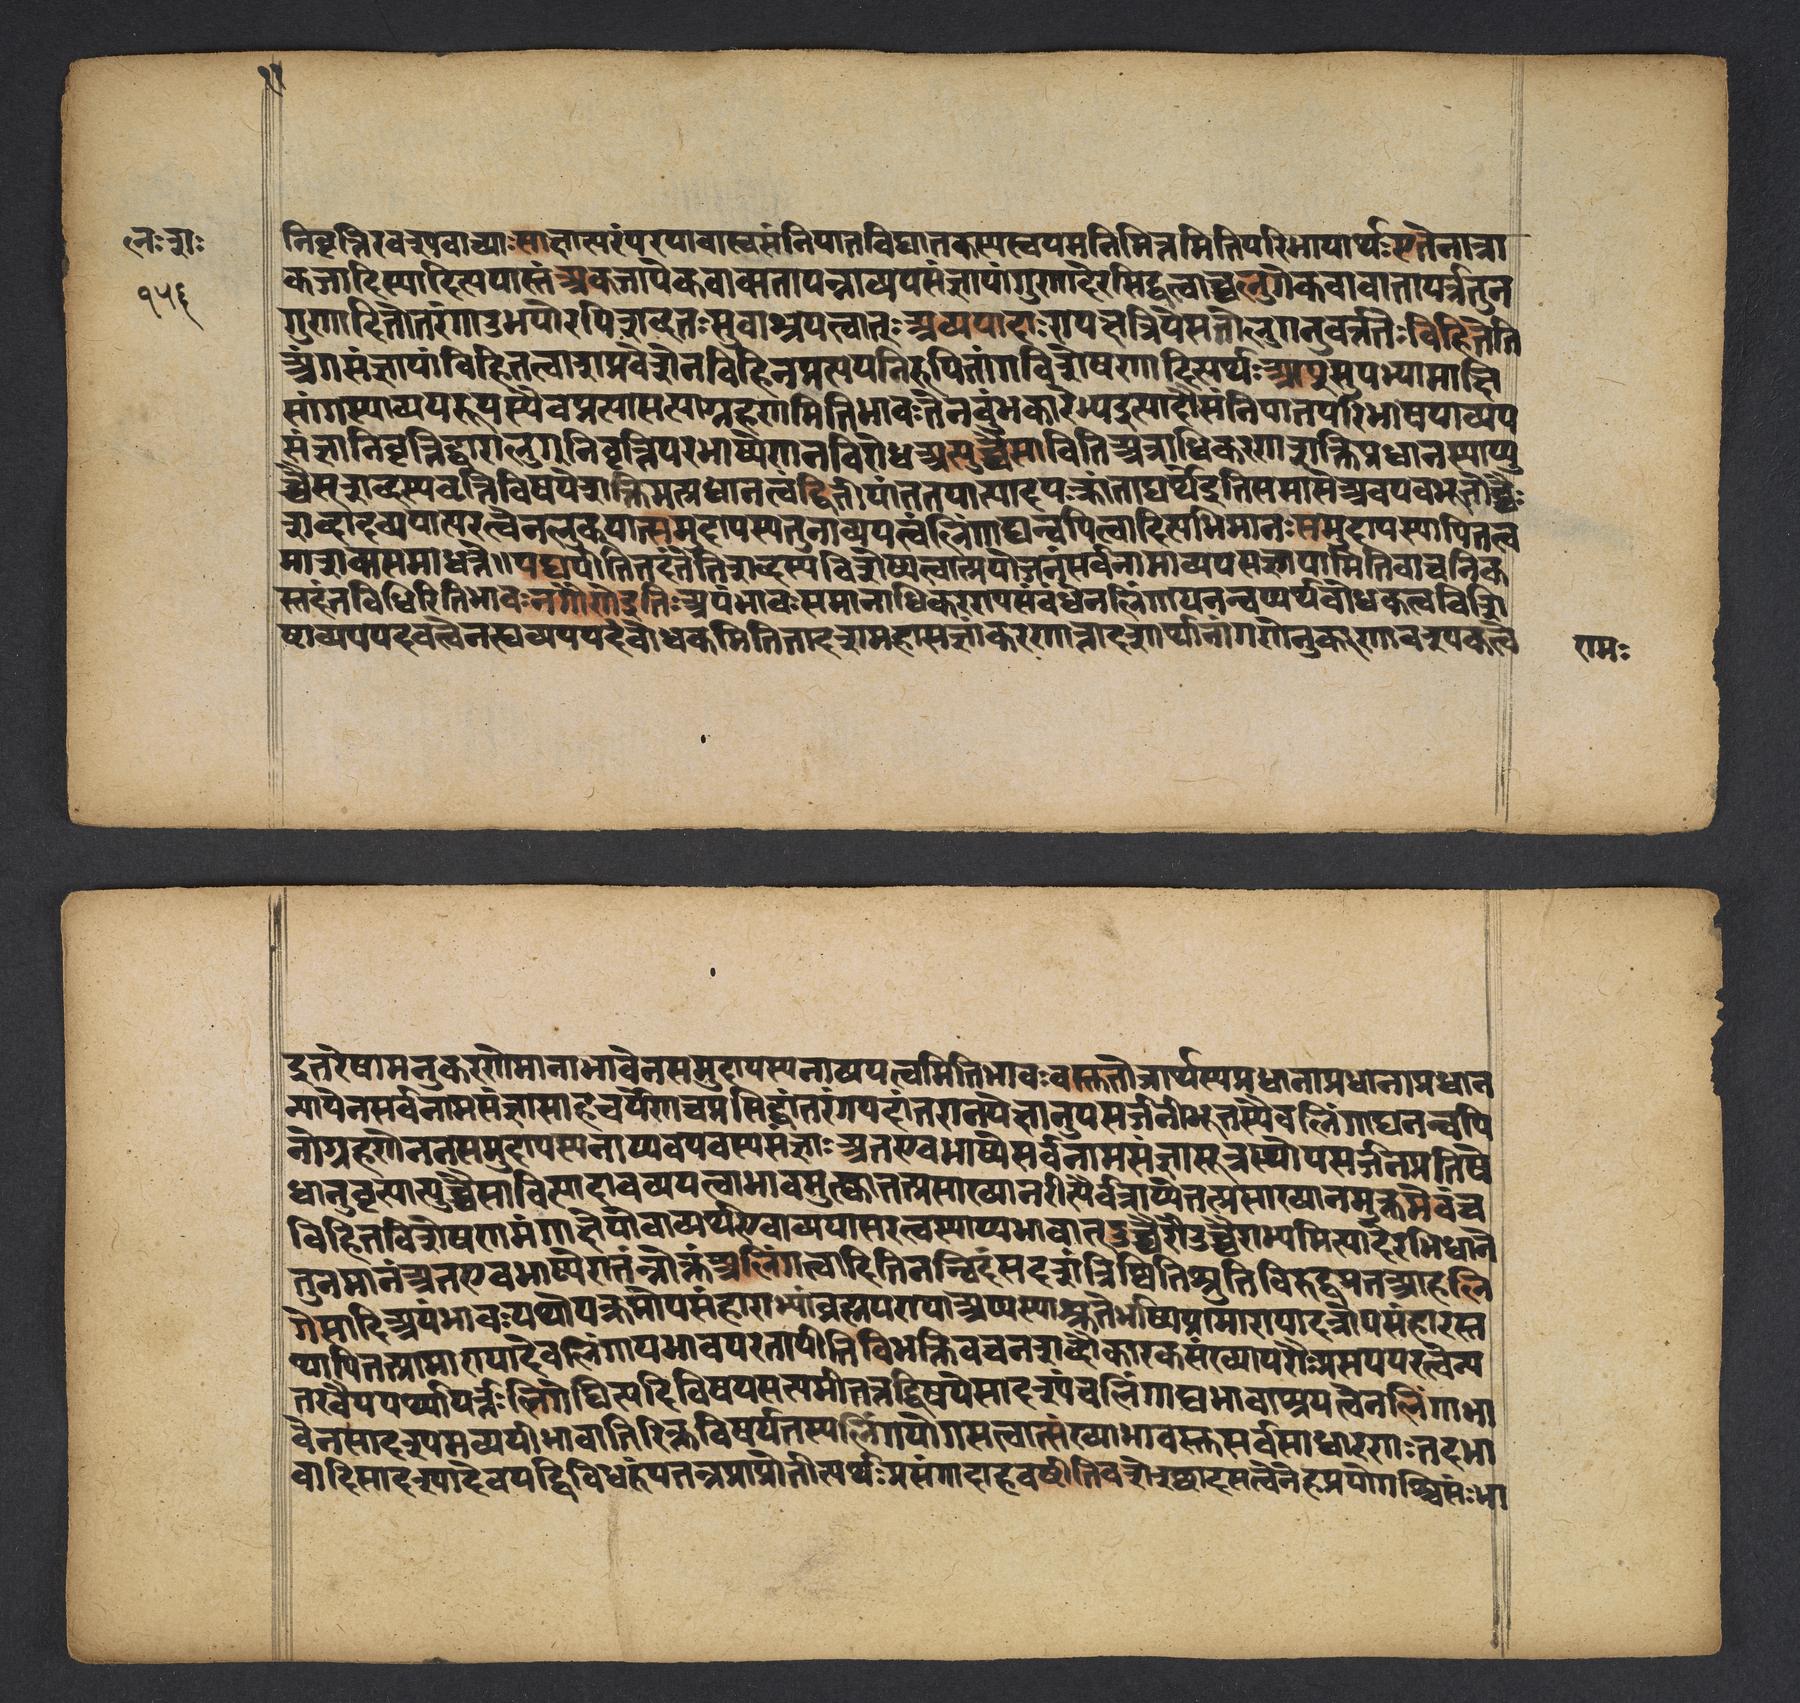 ल॰ श॰
१५६
निवृत्तिस्वरूपवाच्याः साक्षात्परंपरयावास्वसंनिपातविघातकस्यस्वयमनिमित्तमितिपरिभाषार्थः एतेनात्रा
कजादिस्यादित्यपास्तं अकजापेकवाक्यतापन्नाव्ययसंज्ञायांगुणादेरसिद्धत्वाच्चलुगेकवाक्यतापन्नंतुन
गुणादितोतरंगाउभयोरपिशब्दतः सुबाश्रयत्वात् अव्ययादाः रापश्चत्रिपिसतौलुगनुवर्त्तते विहितेति
अंगसंज्ञायांविहितत्वाशप्रवेशेनविहितप्रत्ययनिरूपितांगविशेषणादित्यर्थः आप्सुपभ्यामाक्षि
सांगस्याव्ययरूपस्यैवप्रत्यासत्याग्रहणमितिभावः तेनकुंभकारेभ्यइत्यादौसंनिपातपरिभाषयाव्यय
संज्ञानिवृत्तिद्वारालुगनिवृत्तिपरभाष्येणनविरोधः अत्युच्चैसाविति अत्राधिकरणशक्तिप्रधानस्याप्यु
च्चैसशब्दस्यवृत्तिविषयेशक्तिमत्प्रधानत्वंद्वितीयांततयात्यादयःक्रांताद्यर्थेइतिसमासे अवयवभूतोच्चैः
शब्दादव्ययात्परत्वेनलुक्स्यात्समुदायस्यतुनाव्ययत्वंलिंगाद्यन्वयित्वादित्यभिमानः समुदायस्यापितत्व
माशंक्यसमाधत्ते॥ यद्यपीतितदंतेतिशब्दस्यविशेष्यत्वात्प्रयोजनंसर्वनामाव्ययसंज्ञायामितिवाचनिक
स्तदंतविधिरितिभावः नगौणेइति अयंभावः समानाधिकरणपसंबंधेनलिंगाद्यनन्वय्यर्थबोधकत्वविशि
ष्टाव्ययपदवत्वेनस्वव्ययपदंबोधकमितितादृशमहासंज्ञाकरणात्तादृशार्थानांगणेनुकरणावरुपकत्वे
रामः
इतरेषामनुकरणेमानाभावेनसमुदायस्यनाव्ययत्वमितिभावः वस्तुतोजार्थस्यप्रधानाप्रधानाप्रधान
न्यायेनसर्वनामसंज्ञासाहचर्येणचप्रसिद्धांतरंगपदांतरानपेक्षानुपसर्जनीभूतस्यैवलिंगाद्यनन्वयि
नोग्रहणेनतसमुदायस्यनाप्यवयवस्यसंज्ञाः अतएवभाष्येसर्वनामसंज्ञासूत्रस्थोपसर्जनप्रतिषे
धानुवृत्यात्युच्चैसावित्यादावव्ययत्वाभावमुक्त्वातत्प्रत्याख्यानरीत्यैर्वत्राप्येतत्प्रत्याख्यानमुक्तमेवंच
विहितविशेषणमंगाक्षेपोवाव्यर्थएवाव्ययासरत्वस्याप्यभावात् उच्चैरौउच्चैराभ्यमित्यादेरभिधाने
तुनमानं अतएवभाष्येरातंन्नोक्तं अलिंगत्वादितिनन्विदंसदृशंत्रिष्वितिश्रुतिविरुद्धमतआहलि
गेत्यादि अयंभावः यथोपक्रमोपसंहाराभ्यांब्रह्मपरायाअप्यस्याश्रुतेर्भाष्यप्रामाण्यादत्रोपसंहारस्त
थापितत्प्रामाण्यादेवलिंगायभावपरतापीतिविभक्तिवचनशब्दौकारकसंख्यापरौअसयपरत्वेन्य
तरवैयर्थ्यापत्तेः लिंगेष्वित्यदिविषयसप्तमीतत्तद्विषयेसादृश्यंचलिंगाद्यभावाश्रयत्वेनलिंगाभा
वेनसादृश्यमव्ययीभावातिरिक्तविषयंतस्यलिंगयोगसत्वात्संख्याभावस्तुसर्वसाधारणः तदभा
वादिसादृश्यादेवयद्विविधत्वंपतन्नप्राप्नोतीत्यर्थः प्रसंगादाहवष्टीतिवशेश्छादसत्वेनेहप्रयोगश्चिंत्यः भा